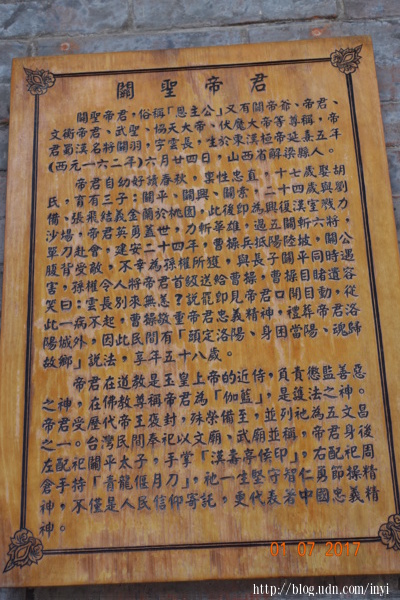 關聖帝君
關聖帝君，俗稱「恩主公」又有關帝爺、帝君、
文衡帝君、武聖、協天大帝、伏魔大帝等尊稱，帝
君蜀漢名將關羽，字雲長，生於東漢桓帝延熹五年
(西元一六二年)六月廿四日，山西省解梁縣人。
帝君自幼好讀春秋，稟性忠直，十七歲娶胡
氏，育有三子：關平、關興、關索，二十四歲與劉
備、張飛結義金蘭於桃園，此後即為興復漢室戮力
沙場，帝君英勇蓋世，力斬華雄，過五關斬六將，
單刀赴會，建安二十四年，曹操兵抵陽陸坡，關公
腹背受敵，不幸為孫權所獲，與長子關平同時遇
害，孫權令人將帝君首級送給曹操，曹操目睹遺容
笑曰：雲長別來無恙？說罷即見帝君口開目動，從
此一病不起，曹操敬重帝君忠義精神，禮葬帝君洛
陽城外，因此民間有「頭定洛陽、身困當陽、魂歸
故鄉」說法，享年五十八歲。
帝君在道教是玉皇上帝的近侍，負責懲監善惡
之神，在佛教尊稱帝君為「伽藍」，是護法之神。
帝君受歷代帝王褒封，殊榮備至，並列祂為五文昌
之一。台灣民間奉祀以文廟、武廟並稱，帝君身後
左配祀關平太子，手掌「漢壽亭侯印」，右配祀周
倉手持「青龍偃月刀」，祂一生堅守智仁勇節操精
神，不僅是人民信仰寄託，更代表著中國忠義精
神。
01 07 2017
http://blog.udn.com/inyi